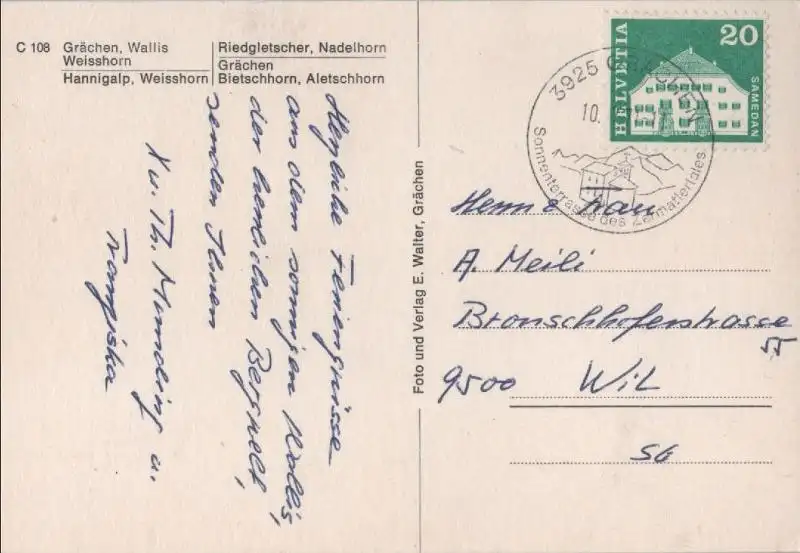 C 108 Grächen, Wallis
Weisshorn
Hannigalp, Weisshorn
Riedgletscher, Nadelhorn
Grächen
Bietschhorn, Aletschhorn
Herzliche Feriengrüsse
aus dem sonnigen Wallis,
der herrlichen Bergwelt,
senden Ihnen
u. Th. u.
Foto und Verlag E. Walter, Grächen
HELVETIA
20
SAMEDAN
3925 GRÄCHEN
10.
Sonnenterrasse des Zermattertales
Herrn & Frau
A. Meili
Bronschhoferstrasse
9500 Wil
SG